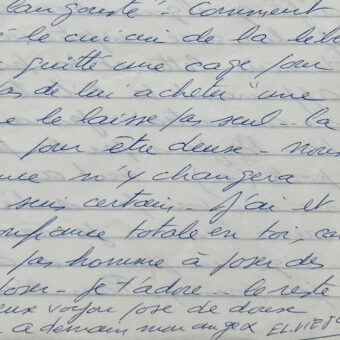 langouste! Comment
le cui cui de la libe
quitte une cage pour
pas de lui acheter une
e le laisse pas seul – la
pour être deux – nous
nce n'y changera
suis certain – J'ai et
onfiance totale en toi, car
pas homme à poser des
oser – je t'adore – le reste
eux voyou pose de doux
a demain mon ange x